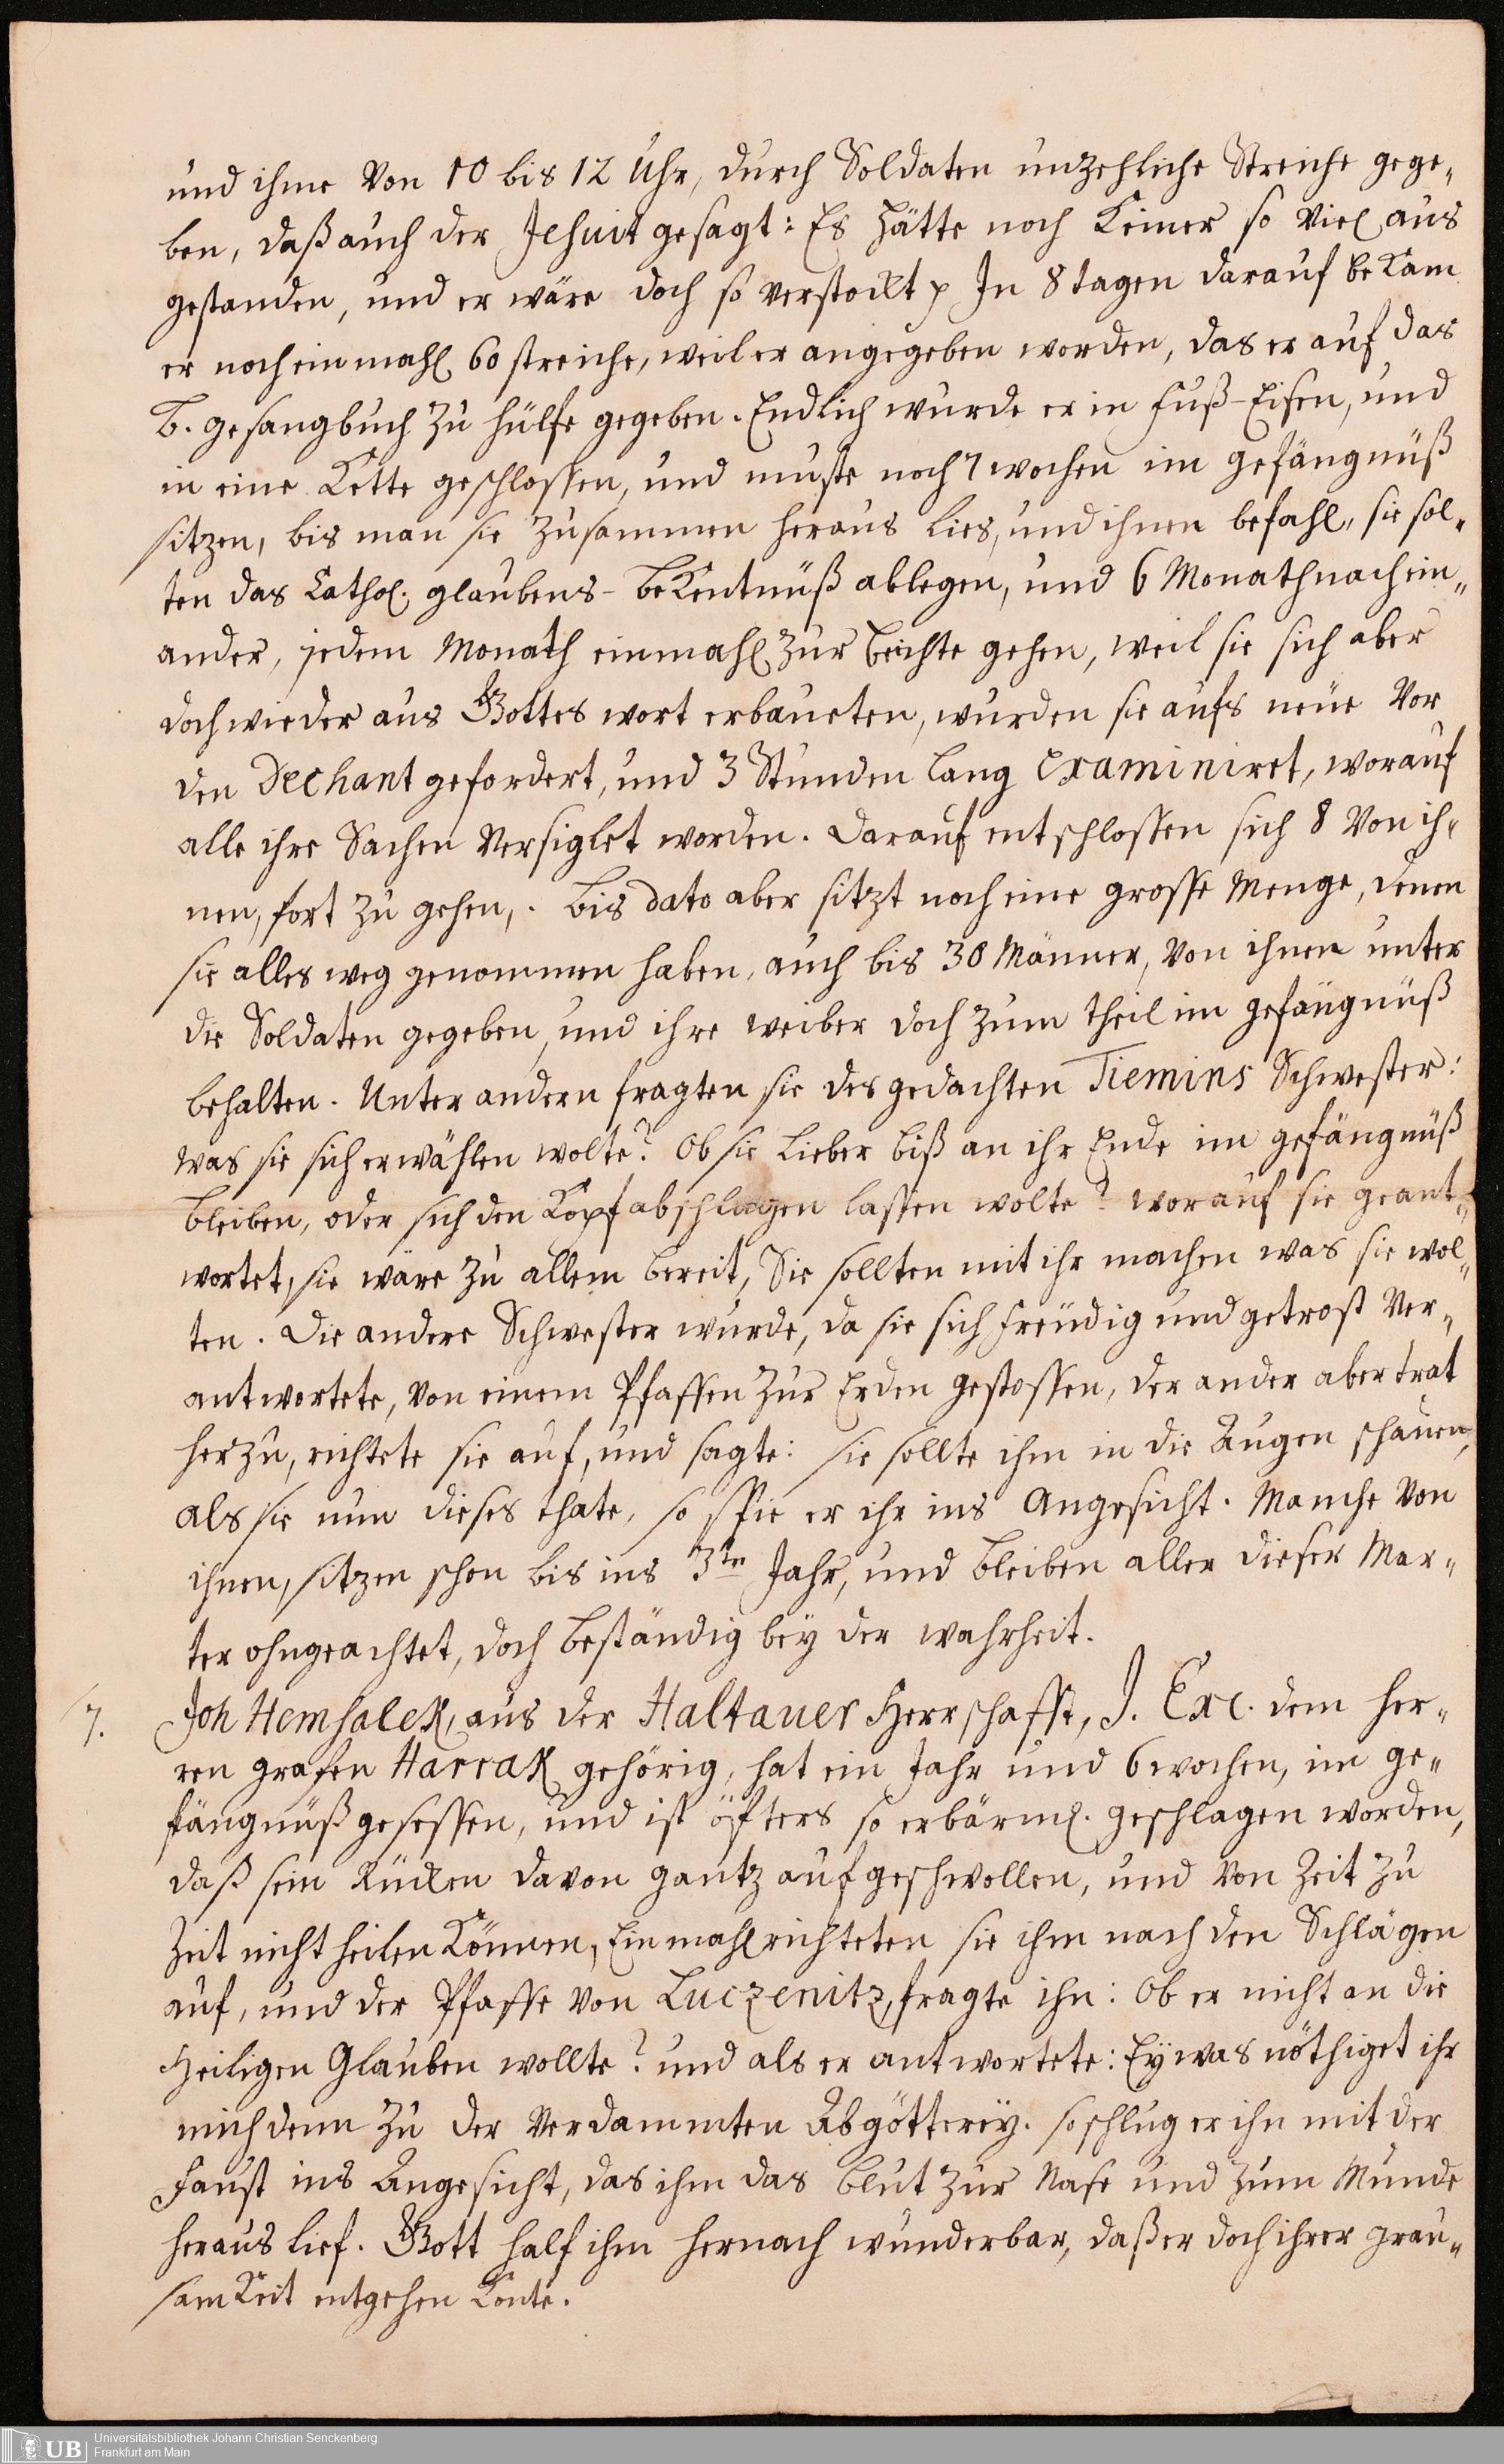 und ihme von 10 bis 12 Uhr, durch Soldaten unzehliche Streiche gege„
ben, daß auch der Jesuit gesagt: Es hätte noch keiner so viel aus
gestanden, und er wäre doch so verstockt p In 8 tagen darauf bekam
er noch einmahl 60 streiche, weil er angegeben worden, das er auf das
B. gesangbuch zu hülfe gegeben. Endlich wurde er in fuß-Eisen, und
in eine Kette geschlossen, und muste noch 7 wochen im gefängnüß
sitzen, bis man sie zusammen heraus lies, und ihnen befahl, sie sol„
ten das Cathol. glaubens-bekentnüß ablegen, und 6 Monath nach ein„
ander, jedem Monath einmahl zur beichte gehen, weil sie sich aber
doch wieder aus Gottes wort erbaueten, wurden sie aufs neüe vor
den Dechant gefordert, und 3 Stunden lang examiniret, worauf
alle ihre Sachen versiglet worden. Darauf entschlossen sich 8 von ih„
nen, fort zu gehen,. bis dato aber sitzt noch eine grosse Menge, denen
sie alles weg genommen haben, auch bis 30 Männer, von ihnen unter
die Soldaten gegeben, und ihre weiber doch zum theil im gefängnüß
behalten. Unter andern fragten sie des gedachten Tiemins Schwester:
was sie sich erwählen wolte? Ob sie lieber biß an ihr Ende im gefängnüß
bleiben, oder sich den Kopf abschlagen lassen wolte? worauf sie geant„
wortet, sie wäre zu allem bereit, Sie sollten mit ihr machen was sie wol„
ten. Die andere Schwester wurde, da sie sich freüdig und getrost ver„
antwortete, von einem Pfaffen zur Erden gestossen, der ander aber trat
herzu, richtete sie auf, und sagte: sie sollte ihm in die Augen schauen,
als sie nun dieses thate, so spie er ihr ins Angesicht. Manche von
ihnen, sitzen schon bis ins 3ten Jahr, und bleiben aller dieser Mar„
ter ohngeachtet, doch beständig bey der wahrheit.
7. Joh Hemsalek, aus der Haltauer Herrschafft, J. Exc. dem Her„
ren grafen Harrak gehörig, hat ein Jahr und 6 wochen, im ge„
fängnüß gesessen, und ist öfters so erbärml. geschlagen worden,
daß sein Rücken davon gantz aufgeschwollen, und von Zeit zu
Zeit nicht heilen können, Einmahl richteten sie ihm nach den Schlägen
auf, und der Pfaffe von Luczenitz, fragte ihn: Ob er nicht an die
Heiligen Glauben wollte? und als er antwortete: Ey was nöthiget ihr
mich denn zu der verdammten Abgötterey. so schlug er ihn mit der
Faust ins Angesicht, das ihm das blut zur Nase und zum Munde
heraus lief. Gott half ihm hernach wunderbar, daß er doch ihrer grau„
samkeit entgehen konte.
UB
Universitätsbibliothek Johann Christian Senckenberg
Frankfurt am Main